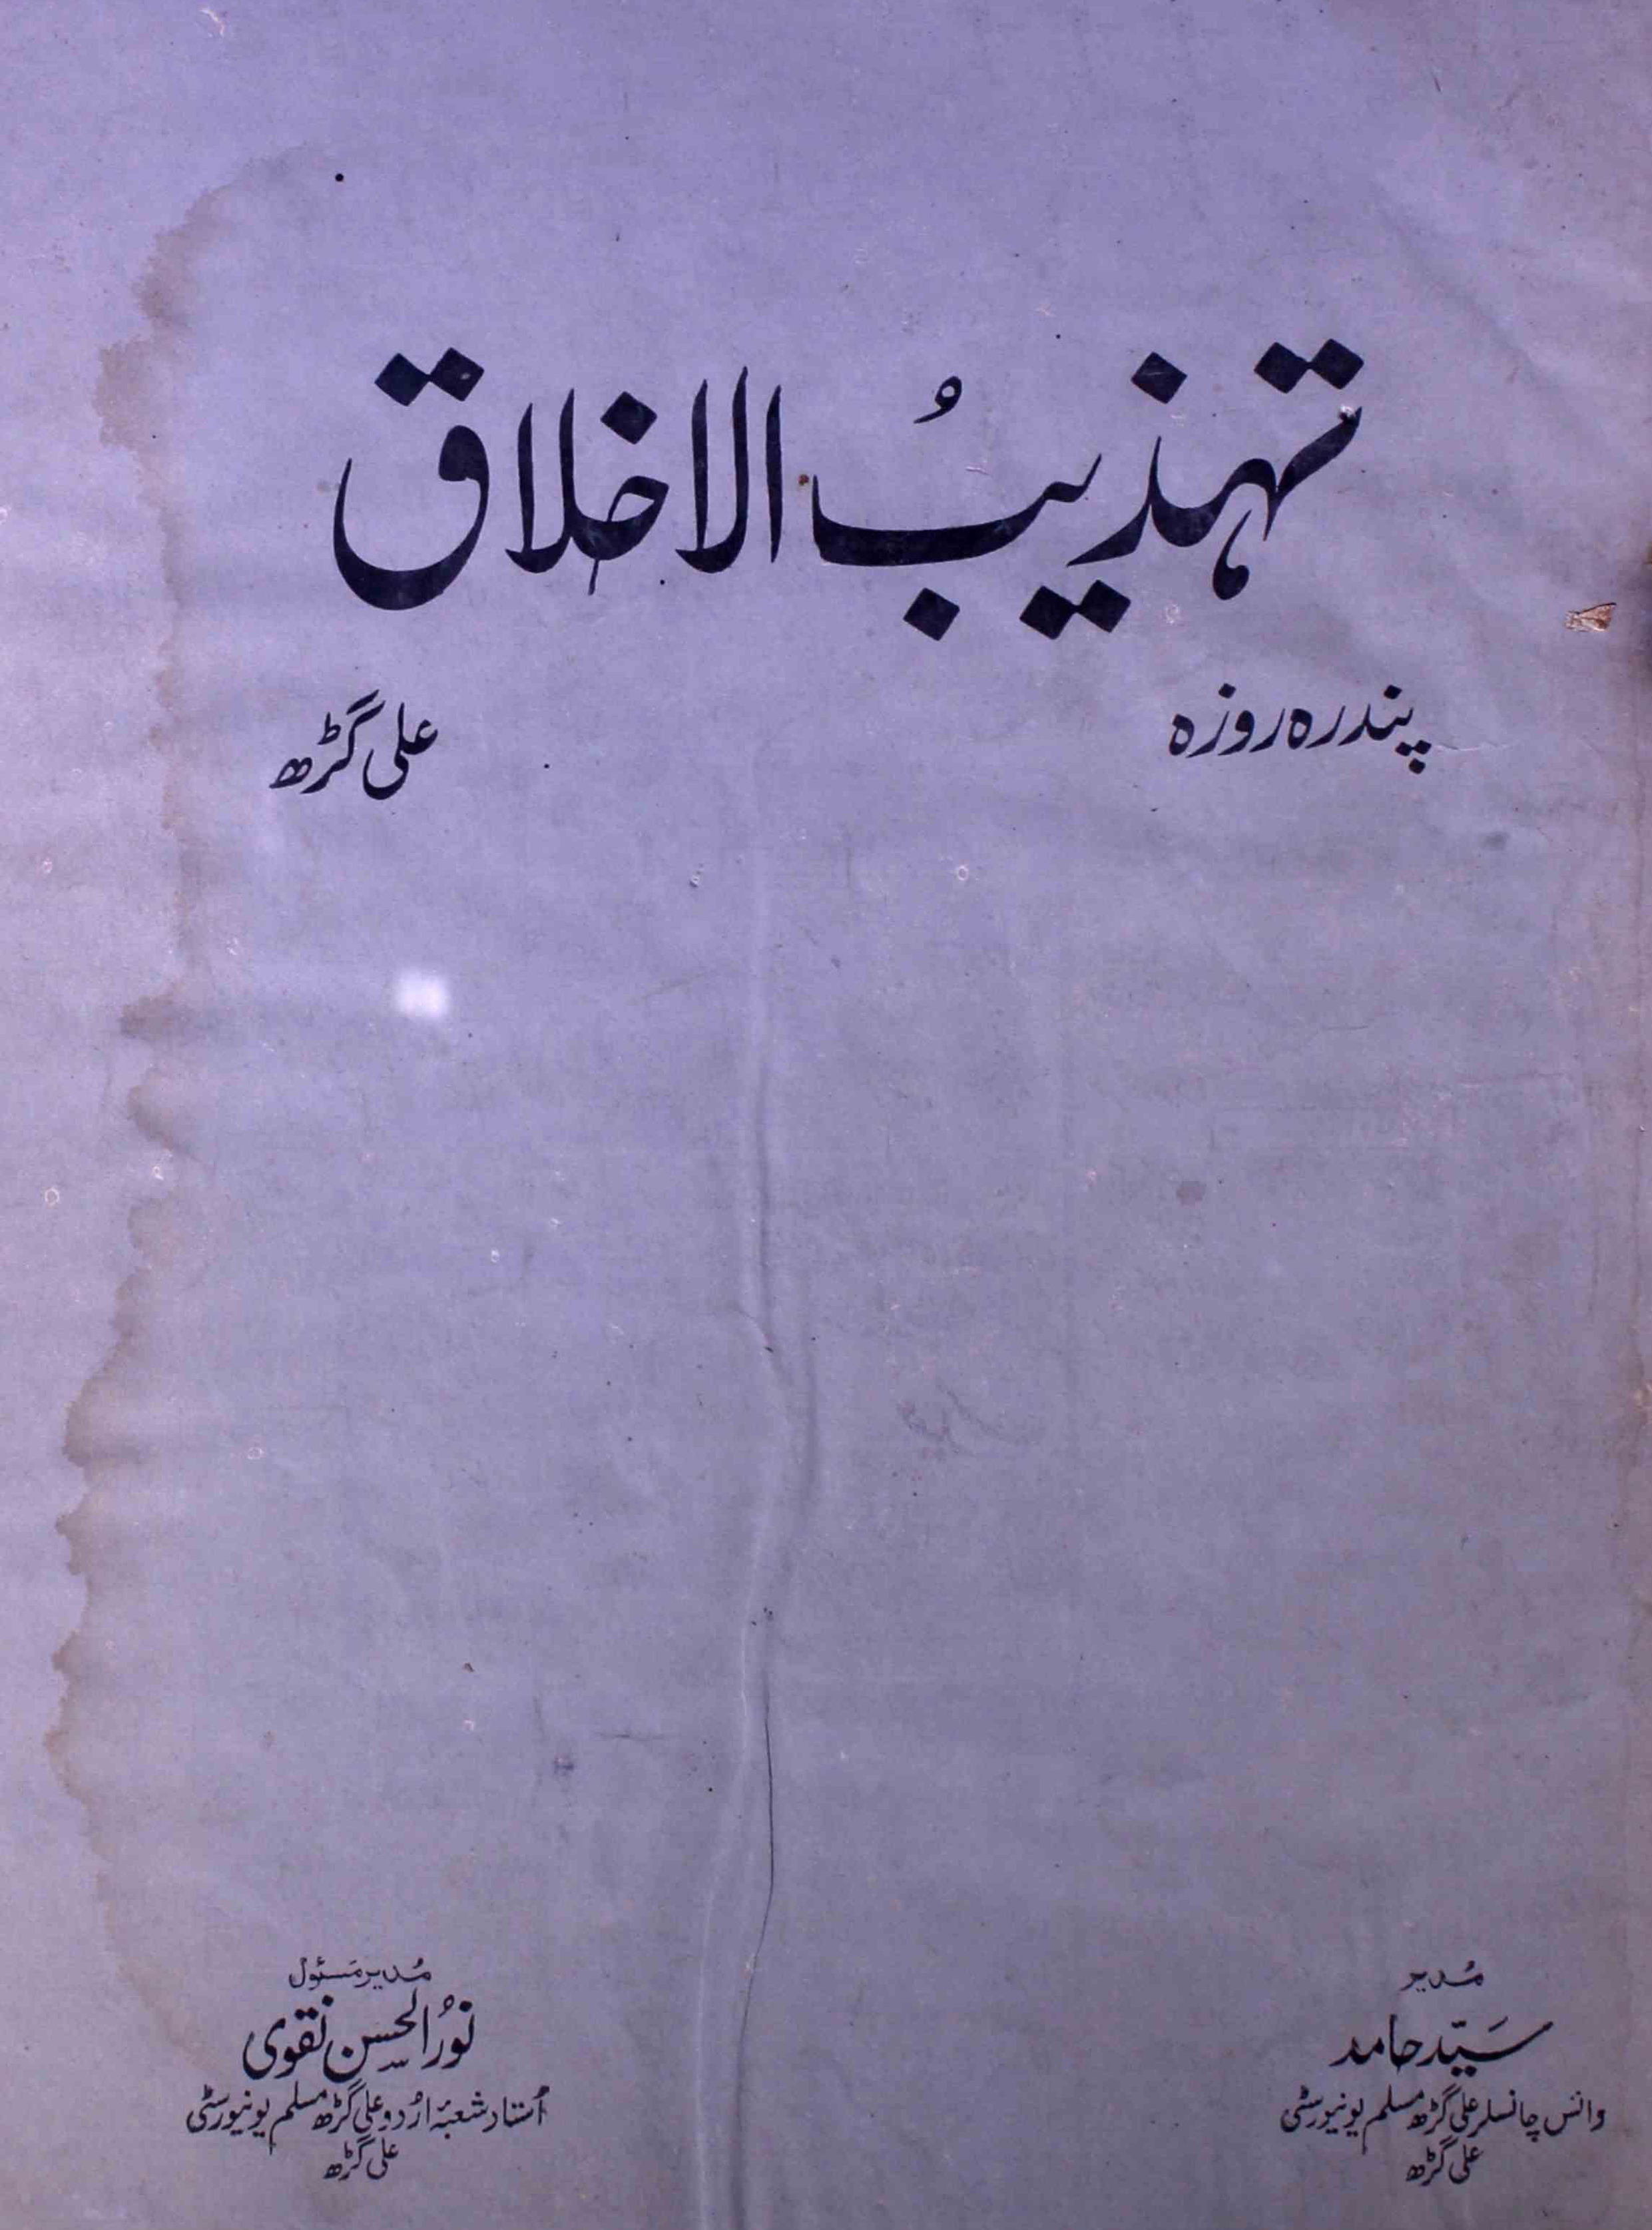 تہذیبُ الاخلاق
پندرہ روزہ
علی گڑھ
مُدیر
سَیّد حامد
وائس چانسلر علی گڑھ مسلم یونیورسٹی
علی گڑھ
مُدیر مَسئول
نُورُ الحسن نقوی
اُستاد شعبۂ اُردو علی گڑھ مسلم یونیورسٹی
علی گڑھ